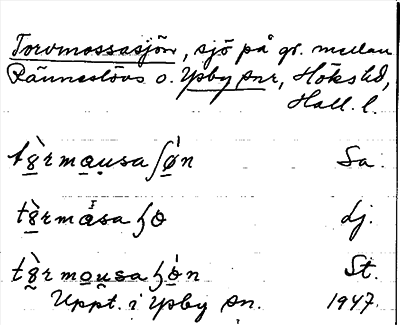 Torvmossasjön, sjö på gr. mellan
Ränneslövs o. Ysby snr, Höks hd,
Hall. l.
tɤ̀rmausaʃǿn Sa.
tɤ̀rmåsaɧo Lj.
tɤ̀rmousaɧòn St.
Uppt. i Ysby sn. 1947.